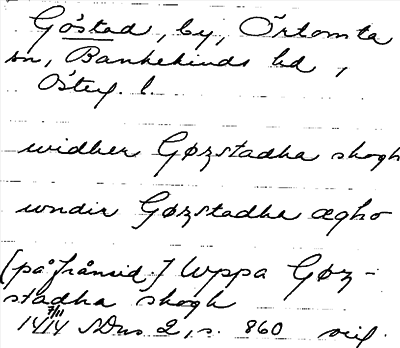 Göstad, by, Örtomta
sn, Bankekinds hd,
Österg. l.
widher Gøzstadha skogh
wndir Gøzstadha ægho
[på frånsid.] Uppa Gøz-
stadha skogh
7/11
1414 SDns 2, s. 860 orig.